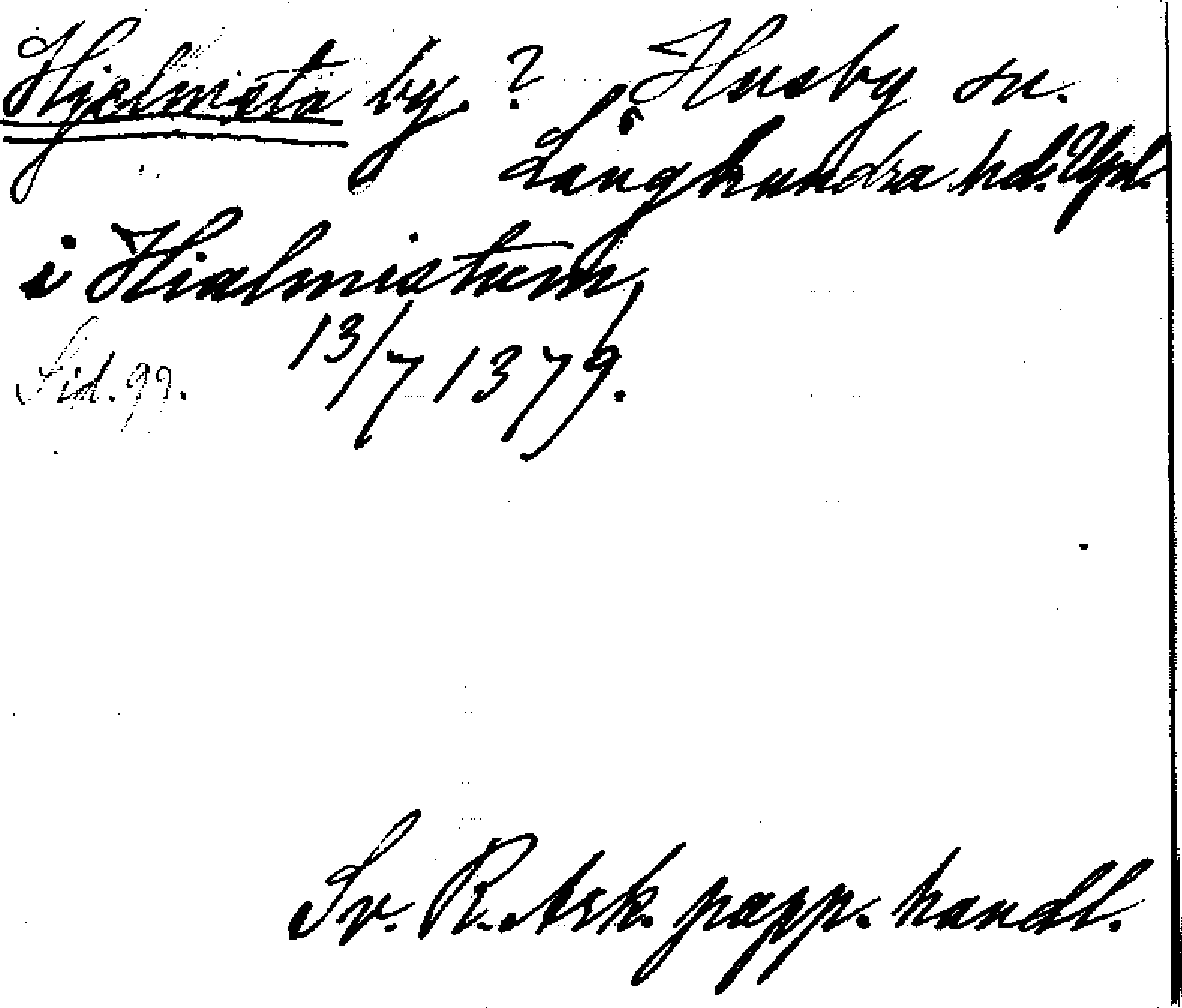 Hjelmsta by. ? Husby sn.
Långhundra hd. Upl.
i Hialmistum
Sid. 99. 13/7 1379.
Sv. R. Ark. papp. handl.